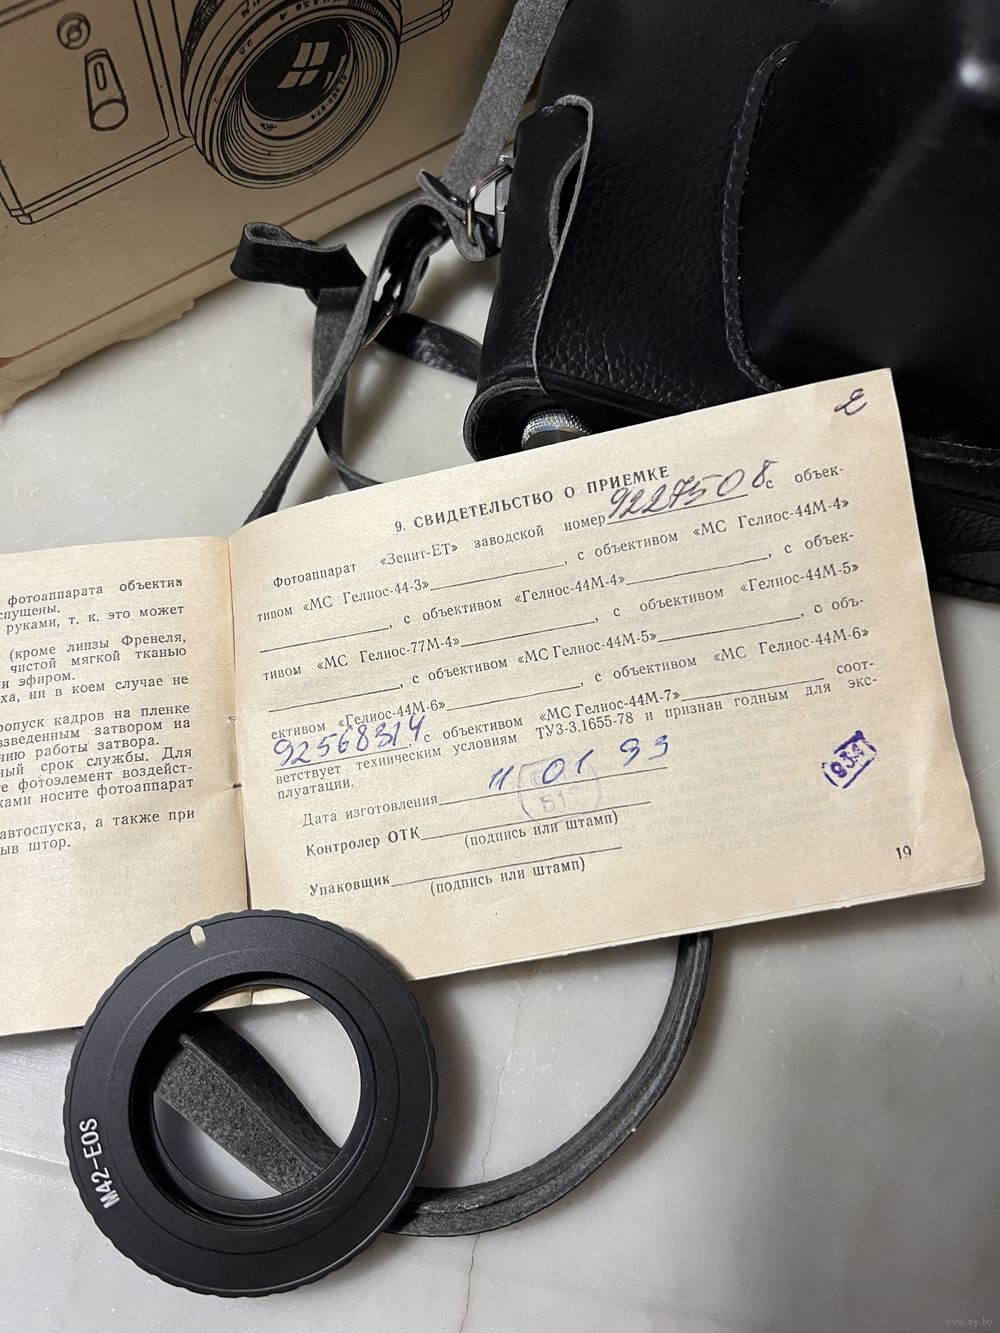 фотоаппарата объектив
спущены.
руками, т. к. это может
(кроме линзы Френеля,
чистой мягкой тканью
и эфиром.
ха, ни в коем случае не
ропуск кадров на пленке
взведенным затвором на
нию работы затвора.
ный срок службы. Для
те фотоэлемент воздейст-
ками носите фотоаппарат
автоспуска, а также при
ыв штор.
9. СВИДЕТЕЛЬСТВО О ПРИЕМКЕ
Фотоаппарат «Зенит-ЕТ» заводской номер 9227508 с объек-
тивом «МС Гелиос-44-3» , с объективом «МС Гелиос-44М-4»
, с объективом «Гелиос-44М-4» , с объек-
тивом «МС Гелиос-77М-4» , с объективом «Гелиос-44М-5»
, с объективом «МС Гелиос-44М-5» , с объ-
ективом «Гелиос-44М-6» , с объективом «МС Гелиос-44М-6»
92568314, с объективом «МС Гелиос-44М-7» соот-
ветствует техническим условиям ТУ3-3.1655-78 и признан годным для экс-
плуатации.
Дата изготовления 11 01 93
Контролер ОТК
(подпись или штамп)
Упаковщик
(подпись или штамп)
19
M42-EOS
www.ay.by